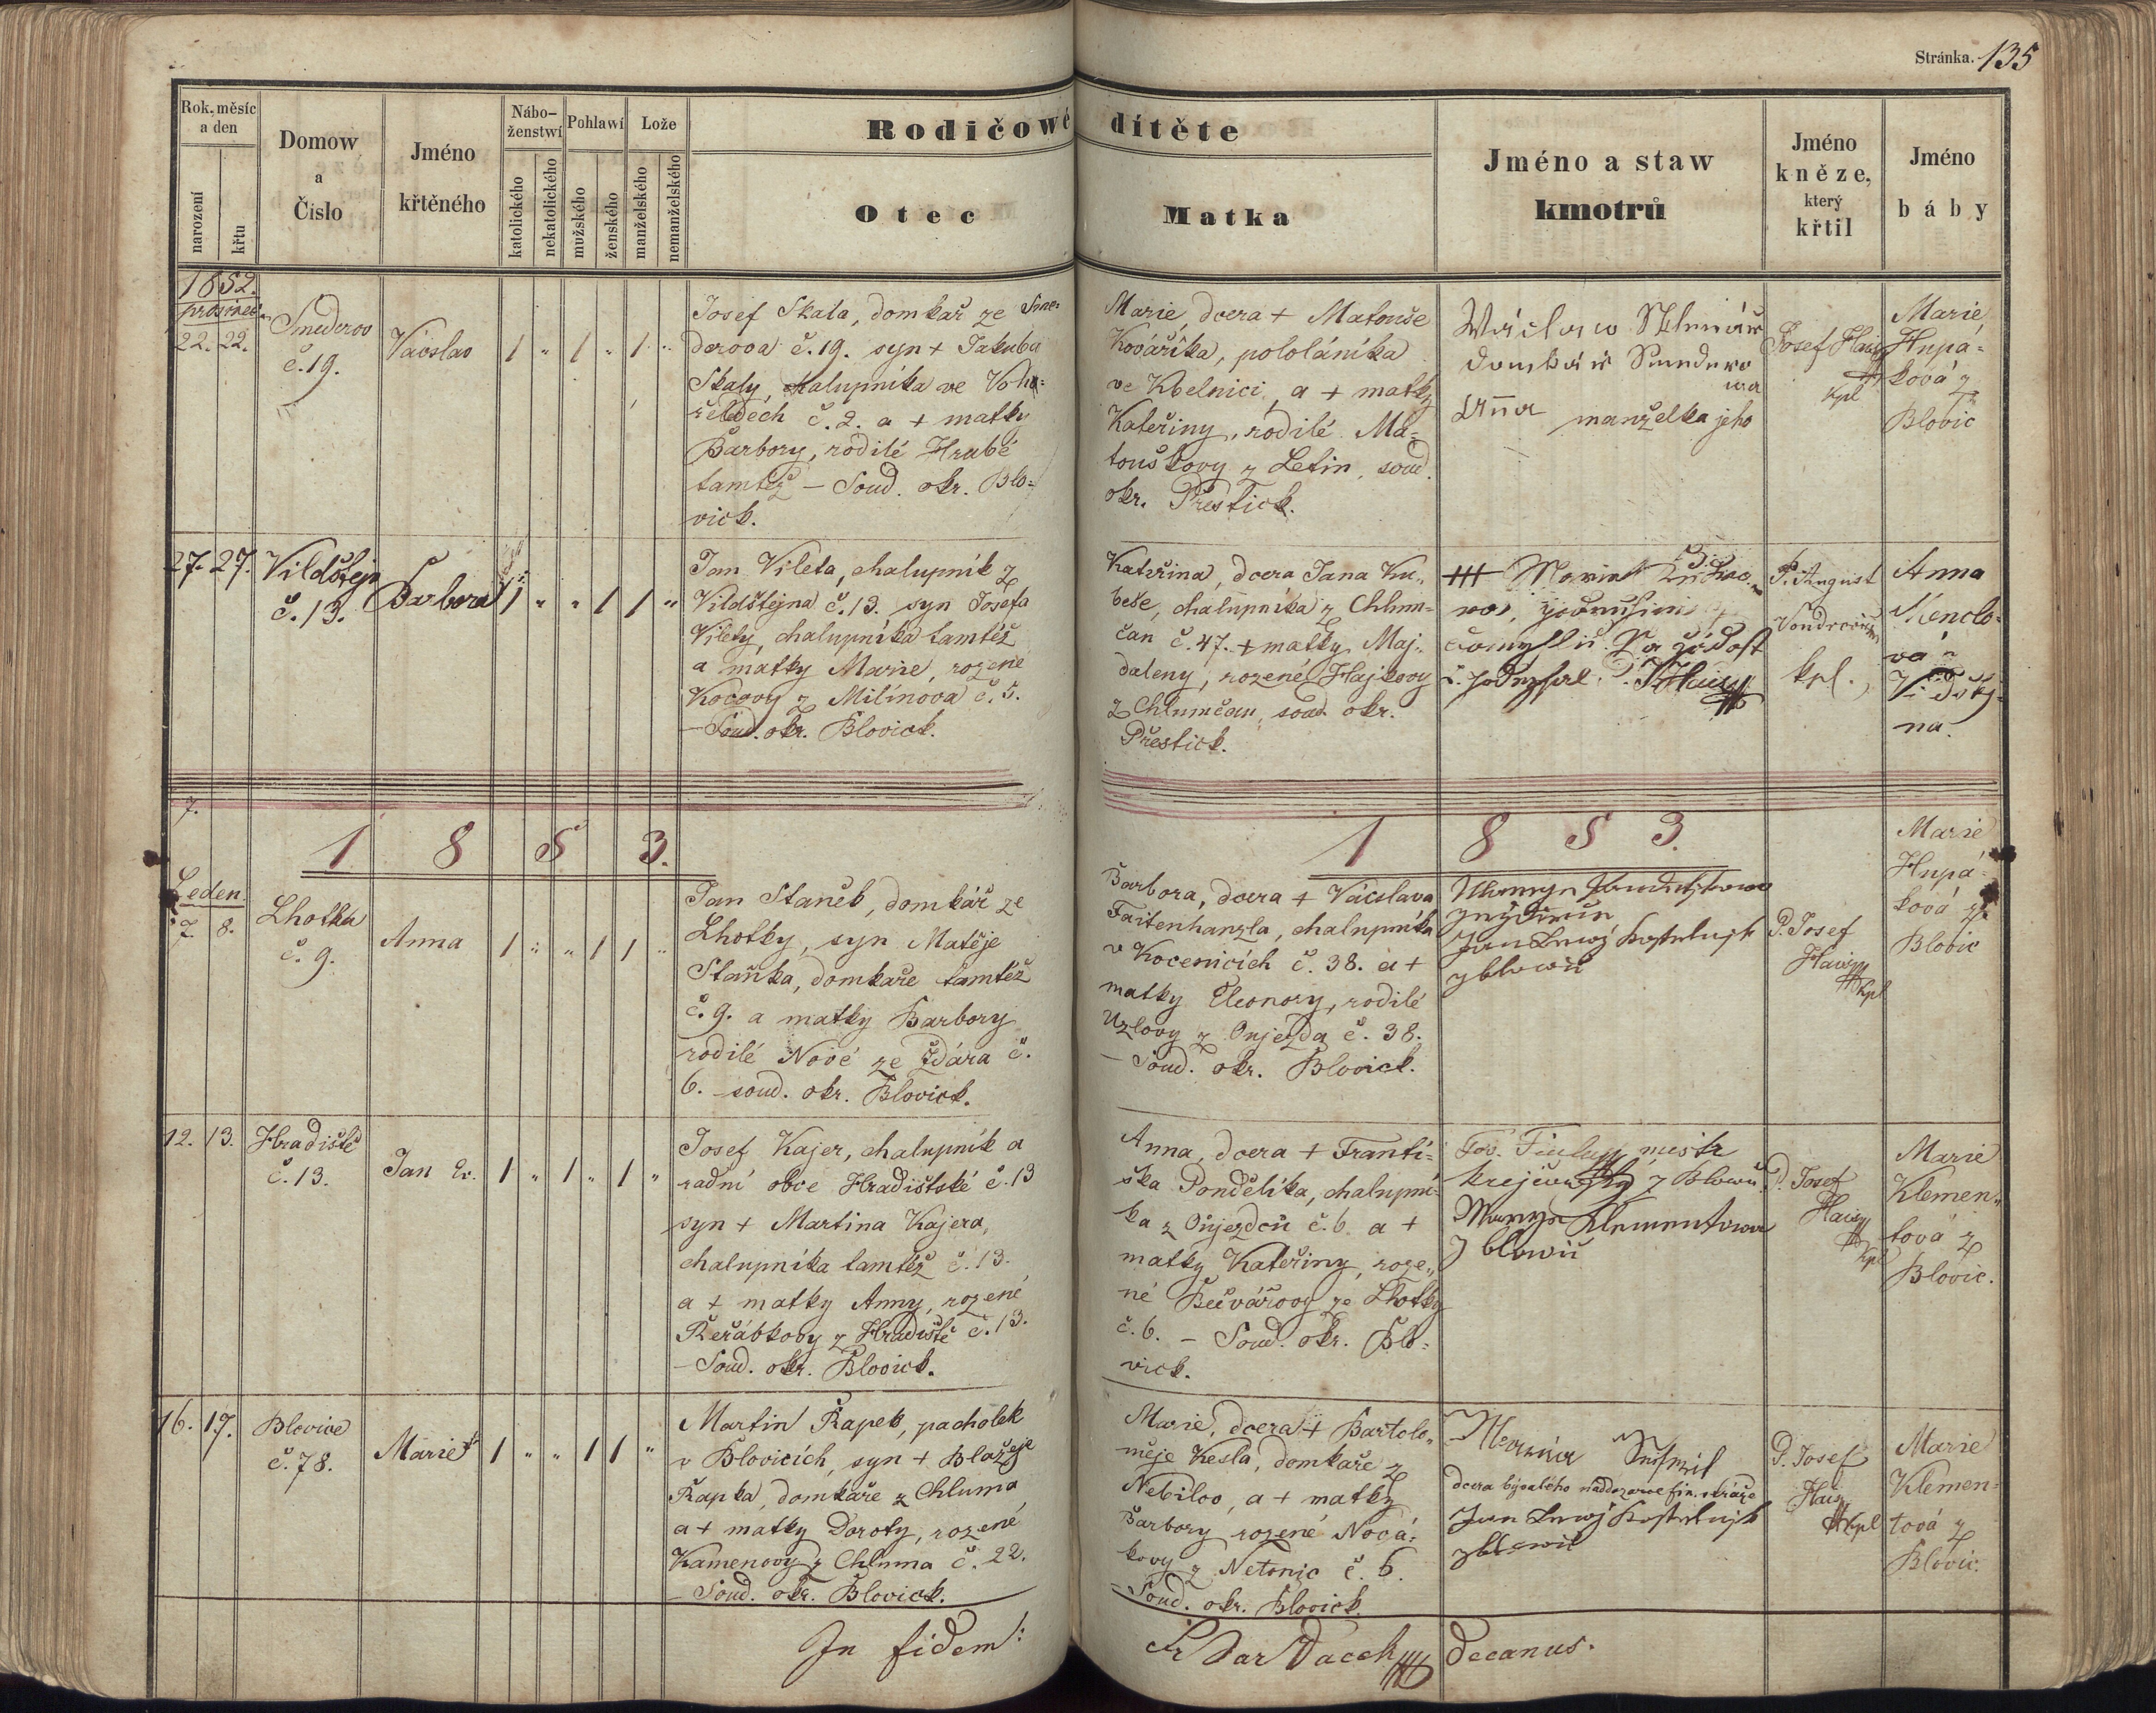 Stránka. 135
Rok, měsíc a den
narození
křtu
Domow
a
Čislo
Jméno
křtěného
Nábo-
ženstwí
katolického
nekatolického
Pohlawí
mužského
ženského
Lože
manželského
nemanželského
Rodičowé dítěte
Otec
Matka
Jméno a staw
kmotrů
Jméno
kněze,
který
křtil
Jméno
báby
1852.
prosinec
22. 22.
Smederov
č. 19.
Václav
1 " 1 " 1 "
Josef Skala, domkař ze Sme=
derova č. 19. syn + Jakuba
Skaly, chalupníka ve
č. 2. a + matky
Barbory, rodilé Hrubé
tamtéž – Soud. okr. Blo=
vick.
Marie, dcera + Matouše
Kováříka, pololáníka
ve Kbelnici, a + matky
Kateřiny, rodilé Ma=
touškovy z Letin, soud.
okr. Přestick.
Wáclaw
domkář
manželka jeho
Josef
kpl
Marie
Hupá=
ková z
Blovic
27. 27.
Vildštejn
č. 13.
Barbora
1 " " 1 1 "
Jan Vileta, chalupník z
Vildštejna č. 13. syn Josefa
Vilety, chalupníka tamtéž
a matky Marie, rozené
Kocovy z Milínova č. 5.
– Soud. okr. Blovick.
Kateřina, dcera Jana Ku„
beše, chalupníka z Chlum=
čan č. 47. + matky Maj„
daleny, rozené Hajkovy
z Chlumčan, soud. okr.
Přestick.
+++ Maria
P. August
kpl.
Anna
Menclo=
vá z
na.
7.
1853.
1853.
Leden.
7. 8.
Lhotka
č. 9.
Anna
1 " " 1 1 "
Jan Staněk, domkář ze
Lhotky, syn Matěje
Staňka, domkaře tamtéž
č. 9. a matky Barbory
rodilé Nové ze Ždára č.
6. – soud. okr. Blovick.
Barbora, dcera + Václava
Faitenhanzla, chalupníka
v Kocenicích č. 38. a +
matky Eleonory, rodilé
Uzlovy z Oujezda č. 38.
– Soud. okr. Blovick.
P. Josef
kpl
Marie
Hupá=
ková z
Blovic
12. 13.
Hradiště
č. 13.
Jan Ev.
1 " 1 " 1 "
Josef Kajer, chalupník a
radní obce Hradištské č. 13
syn + Martina Kajera,
chalupníka tamtéž č. 13.
a + matky Anny, rozené
Řeřábkovy z Hradiště č. 13.
– Soud. okr. Blovick.
Anna, dcera + Franti=
ška Pondělíka, chalupní=
ka z Oujezdců č. 6. a +
matky Kateřiny, roze„
né Bečvářovy ze Lhotky
č. 6. – Soud. okr. Blo=
vick.
mistr
krejčowský z
Klementowa
z blowic
P. Josef
kpl
Marie
Klemen„
tová z
Blovic.
16. 17.
Blovice
č. 78.
Marie +
1 " " 1 1 "
Martin Řapek, pacholek
v Blovicích, syn + Blažeje
Řapka, domkaře z Chluma
a + matky Doroty, rozené
Kamenovy z Chluma č. 22.
– Soud. okr. Blovick.
Marie, dcera + Bartolo„
měje Kesla, domkaře z
Nebilov, a + matky
Barbory rozené Nocá=
kovy z Netonic č. 6.
Soud. okr. Blovick.
dcera bývalého naddozorce fin. stráže
P. Josef
kpl
Marie
Klemen=
tová z
Blovic.
In fidem:
decanus.